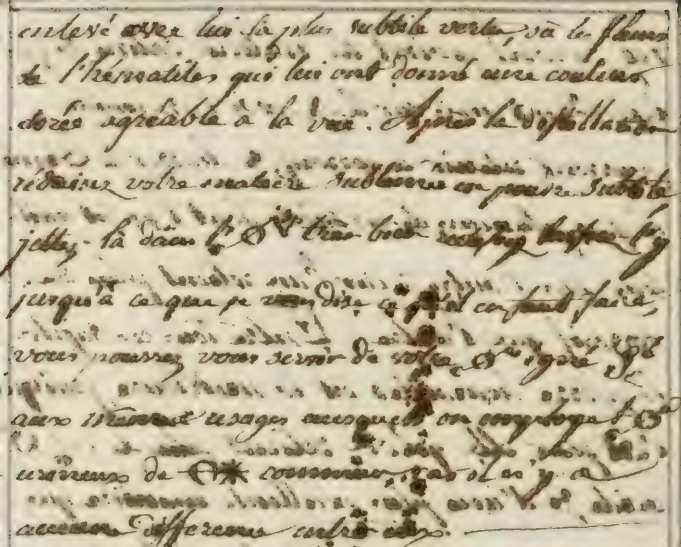 enlevé avec lui la plus subtile vertu, où les fleurs
de l'hématites qui lui ont donné une couleur
dorée agréable à la vue. Après la distillation
réduisez votre matière sublimée en poudre subtile
jettez-la dans très bien
jusqu'à ce que je vous dise ce qu'il en faut faire,
vous pourrez vous servir de votre igné
aux mêmes usages ausquels on employe l'
urineux de commun, car il n'y a
aucune différence entre eux.